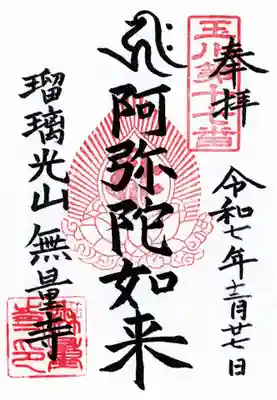 奉拝
令和七年十二月廿七日
阿弥陀如来
瑠璃光山無量寺